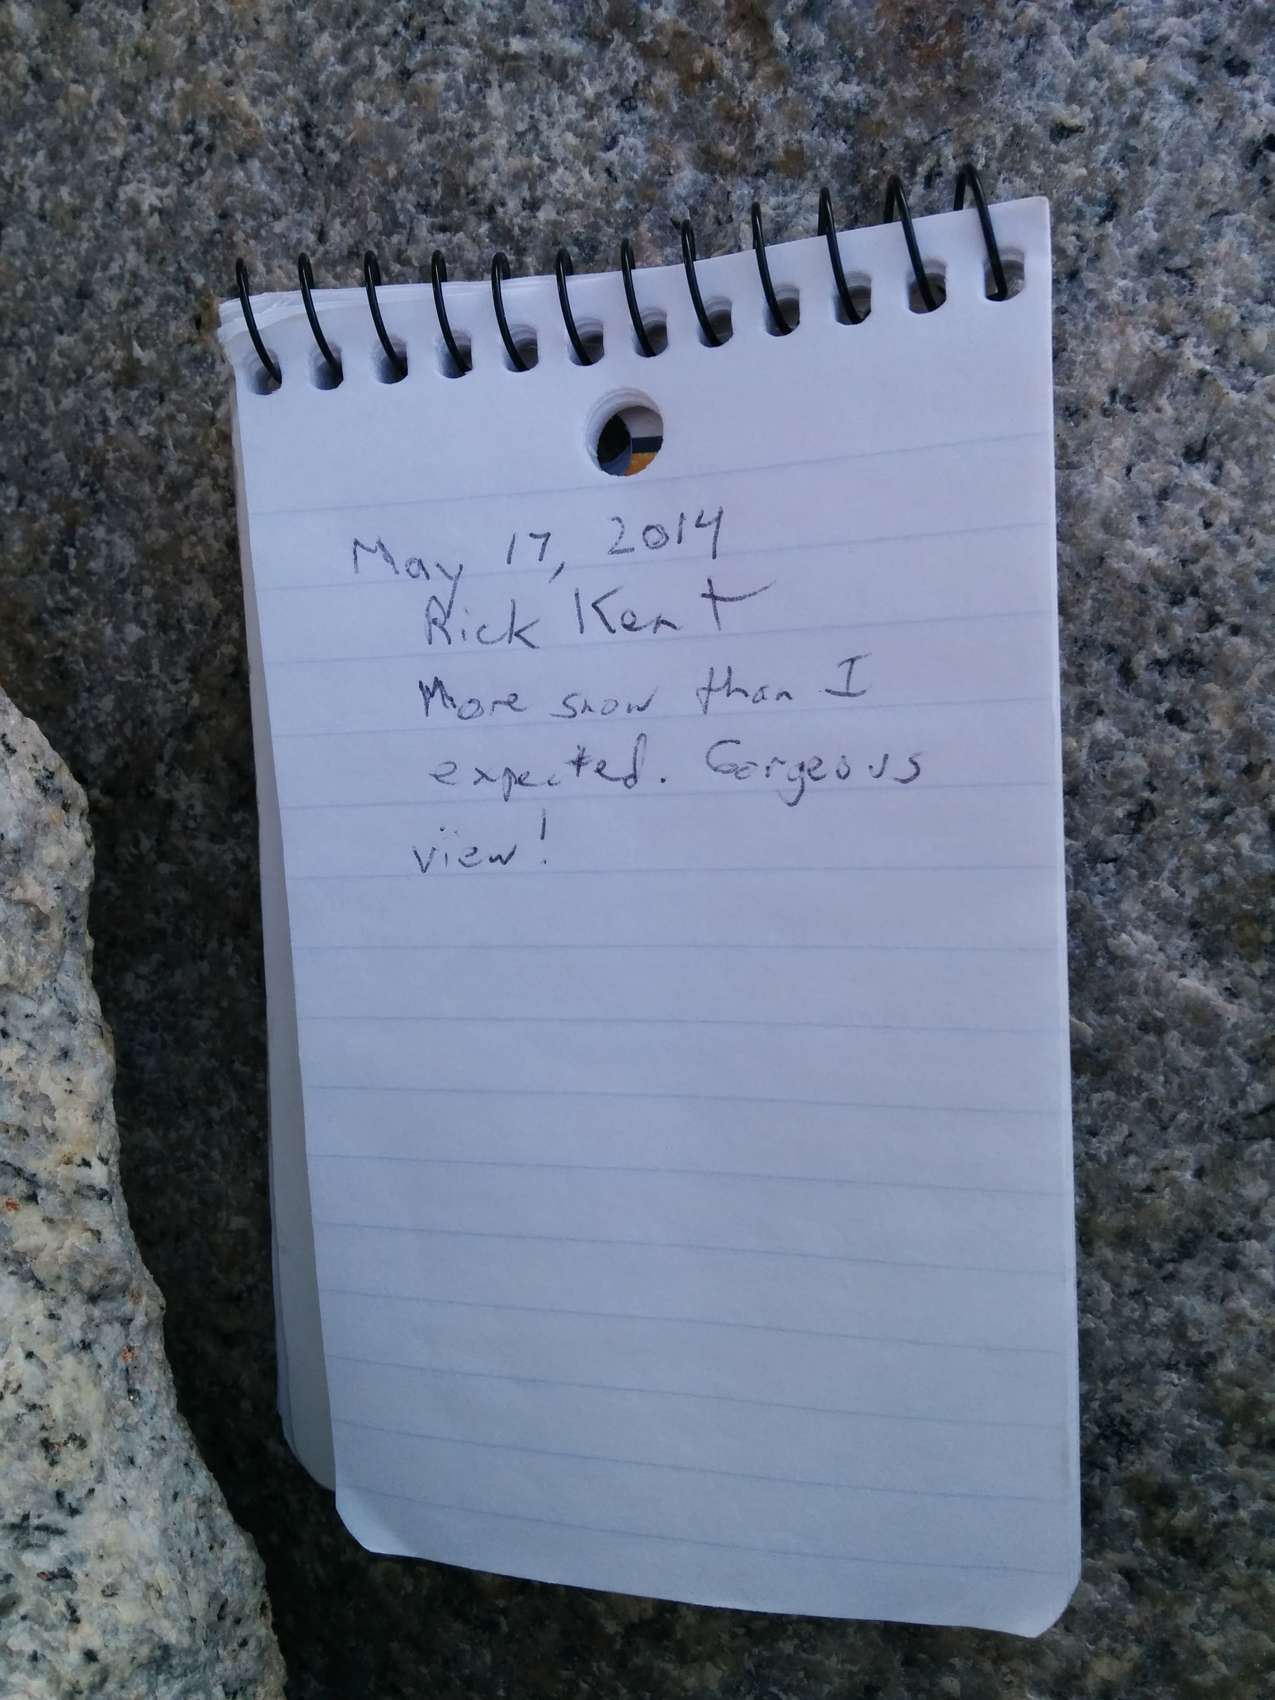 May 17, 2014
Rick Kent
More snow than I
expected. Gorgeous
view!